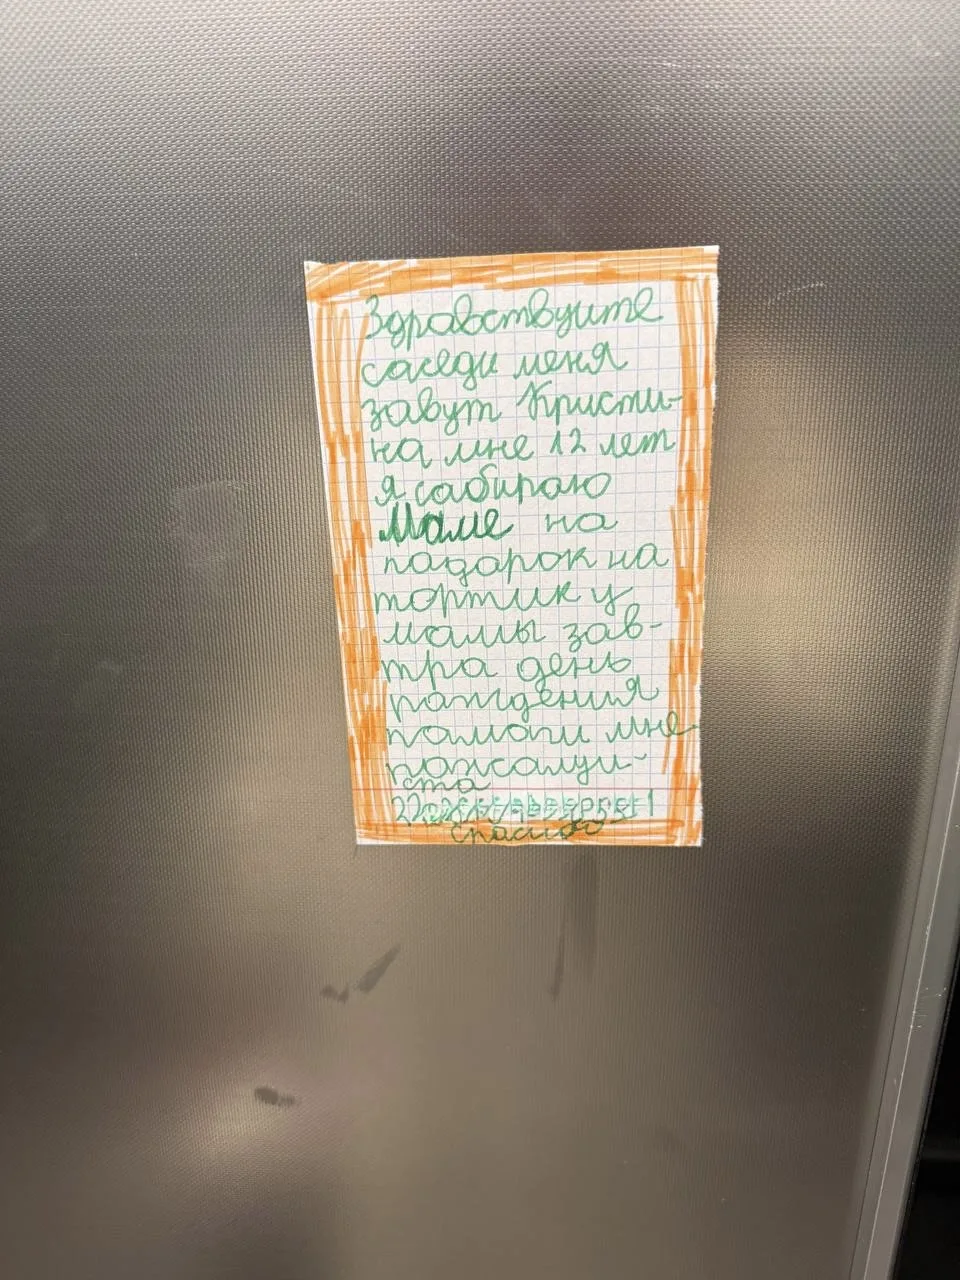 Здравствуите
саседи меня
завут Кристи-
на мне 12 лет
я сабираю
Маме на
падарок на
тортик у
мамы зав-
тра день
раждения
памаги мне
пожалуи-
ста
спасибо